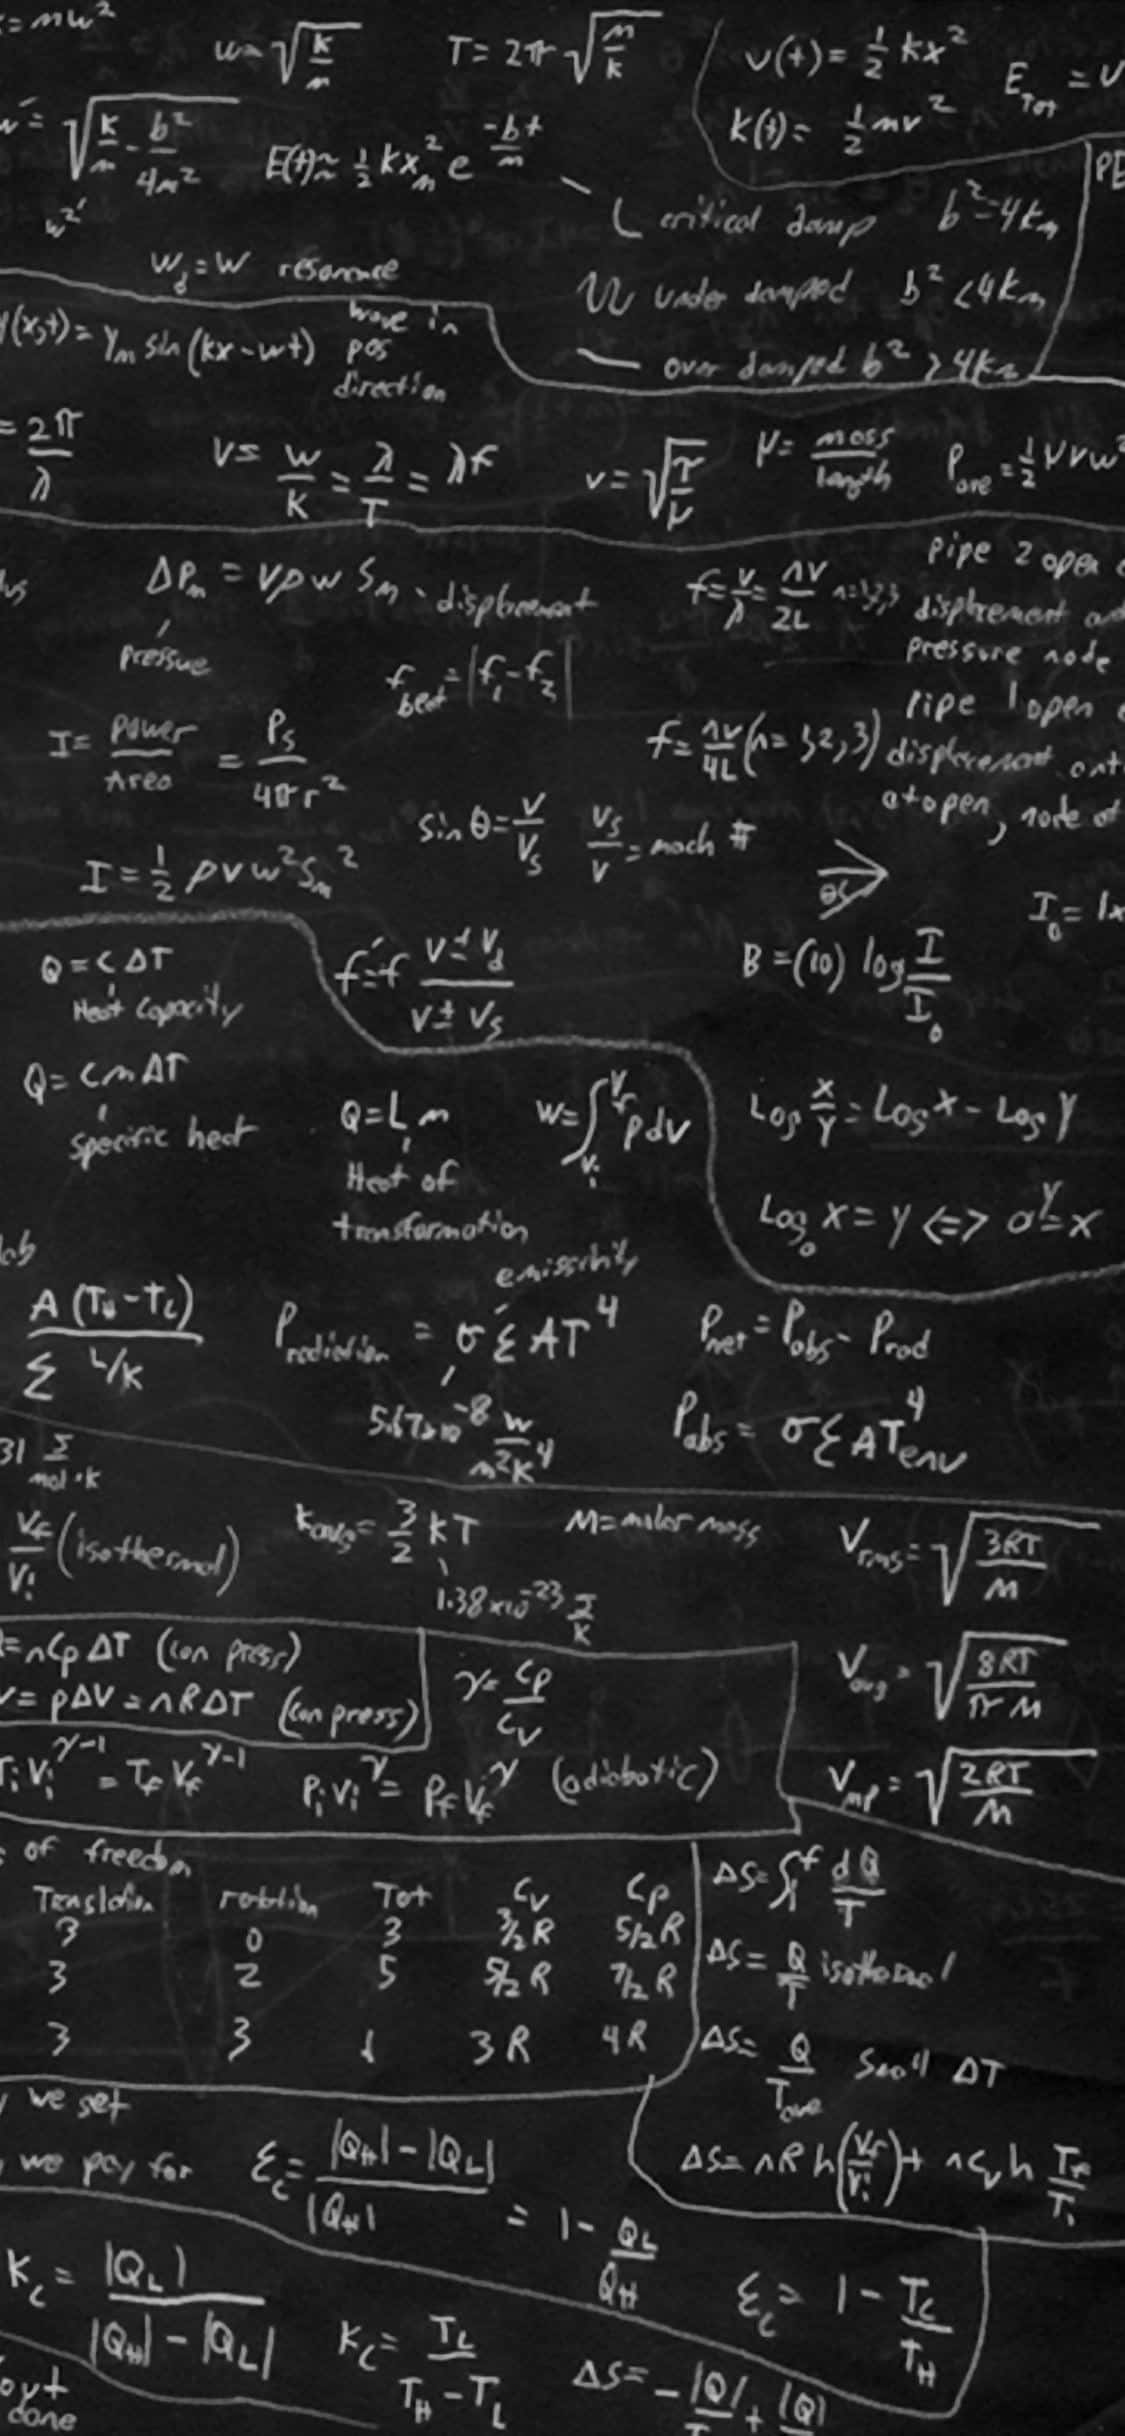 k=mω²
ω=√(k/m)
T=2π√(m/k)
U(t)=½kx²
K(t)=½mv²
E_Tot = U
ω'=√(k/m - b²/4m²)
E(t)≈½kx_m² e^(-bt/m)
critical damp b²=4km
under damped b²<4km
over damped b²>4km
ω²'
ω_d=ω resonance
y(x,t)=y_m sin(kx-ωt)
wave in
pos
direction
=2π/λ
v=ω/k=λ/T=λf
v=√(τ/μ)
μ=mass/length
P_ave=½μvω²
ΔP_m = vρω S_m - displacement
pressure
f=v/λ=nv/2L n=1,2,3
pipe 2 open
displacement
pressure node
f_beat=|f₁-f₂|
I=Power/Area = P_s/4πr²
f=nv/4L (n=1,2,3)
pipe 1 open
displacement ant
at open, node at
sin θ=v/v_s
v_s/v=mach #
I=½ρvω²S_m²
I₀=1x
Q=CΔT
Heat Capacity
f'=f (v±v_d)/(v±v_s)
B=(10) log I/I₀
Q=cmΔT
specific heat
Q=Lm
Heat of
transformation
W=∫_{Vi}^{Vf} p dV
Log x/y=Log x - Log y
Log_a x=y <=> a^y=x
emissivity
A(T_H-T_L)/Σ L/K
P_radiation = σεAT⁴
P_net=P_abs-P_rad
5.67x10⁻⁸ W/m²K⁴
P_abs=σεAT⁴_env
31 J/mol·K
Vf/Vi (isothermal)
K_avg=3/2 kT
1.38x10⁻²³ J/K
M=molar mass
V_rms=√(3RT/M)
=nCpΔT (con press)
=pΔV=nRΔT (con press)
γ=Cp/Cv
V_avg=√(8RT/πM)
TiVi^(γ-1)=TfVf^(γ-1)
PiVi^γ=PfVf^γ (adiabatic)
V_mp=√(2RT/M)
of freedom
Translation rotation Tot Cv Cp
3 0 3 3/2R 5/2R
3 2 5 5/2R 7/2R
3 3 3R 4R
ΔS=∫_i^f dQ/T
ΔS=Q/T isothermal
ΔS=Q/T_ave small ΔT
ΔS=nR ln(Vf/Vi)+nCv ln Tf/Ti
we get
we pay for
ε_c=(|Q_H|-|Q_L|)/|Q_H| = 1-Q_L/Q_H
ε_c=1-T_L/T_H
K_c=|Q_L|/(|Q_H|-|Q_L|)
K_c=T_L/(T_H-T_L)
ΔS=-|Q|/T+|Q|
out
done